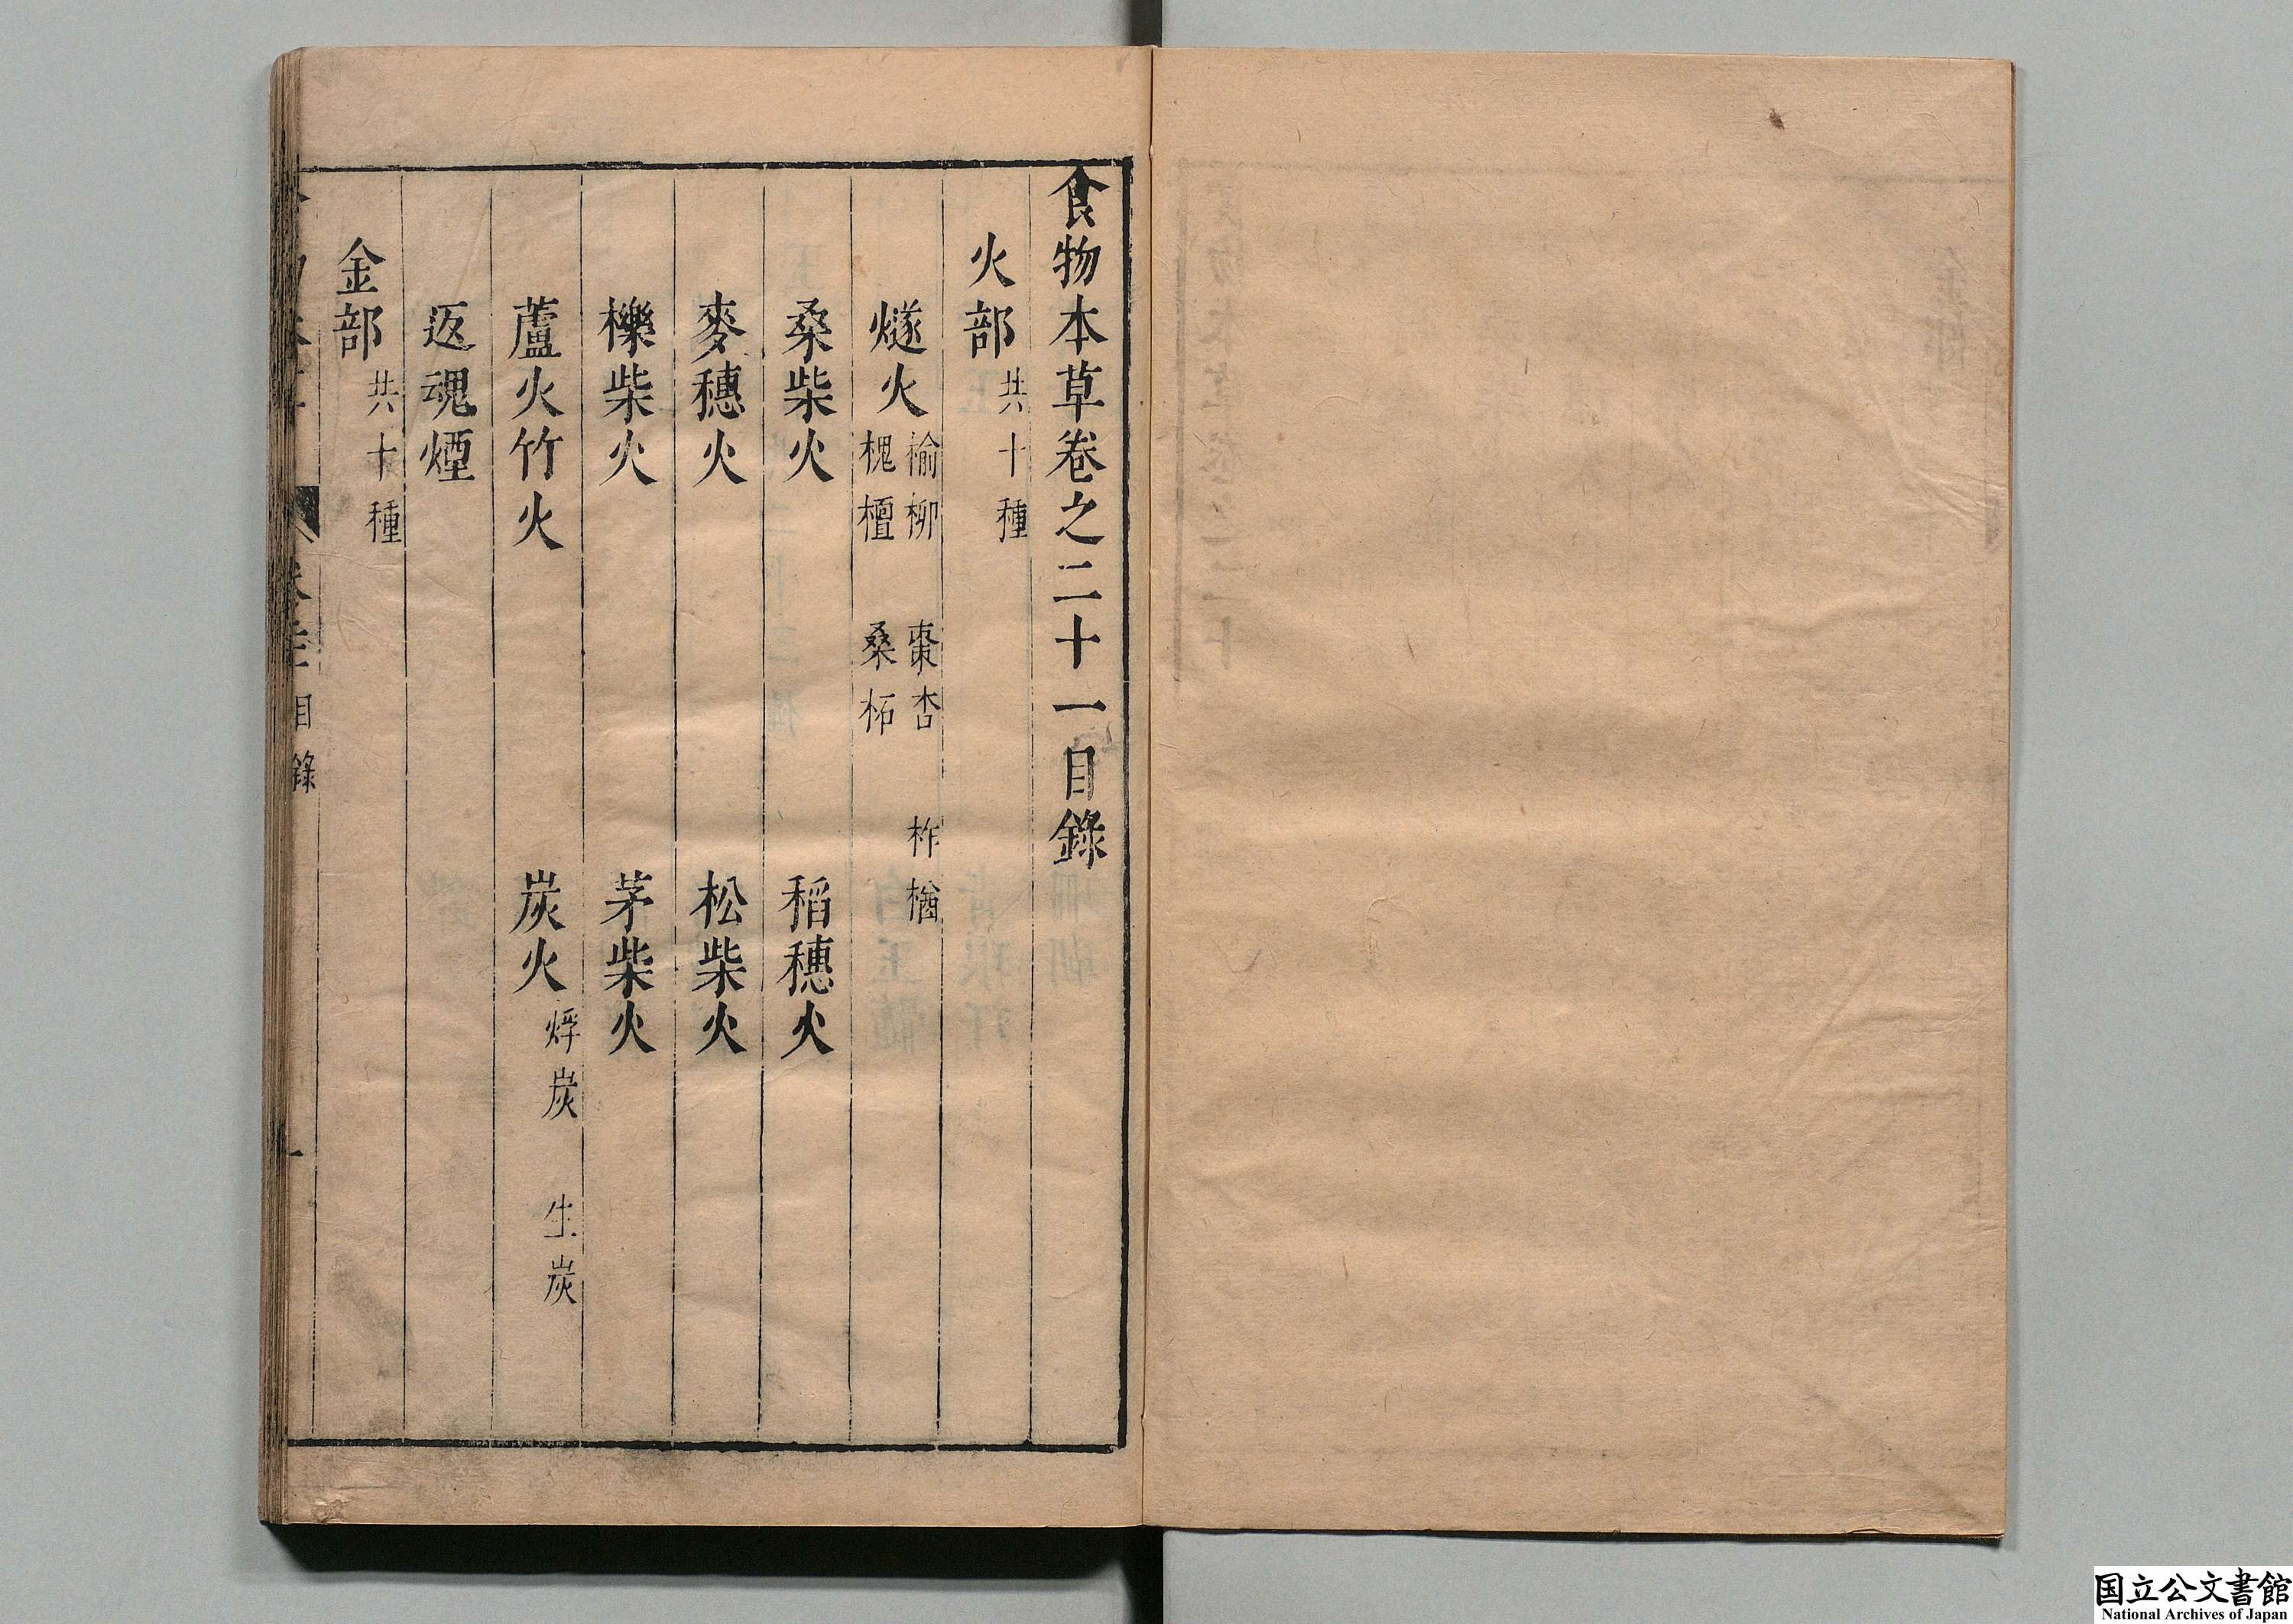 食物本草卷之二十一目錄
火部 共十種
燧火 榆柳 棗杏 柞楢
槐檀 桑柘
桑柴火 稻穗火
麥穗火 松柴火
櫟柴火 茅柴火
蘆火竹火 炭火 烰炭 生炭
返魂煙
金部 共十種
目錄 一
国立公文書館
National Archives of Japan